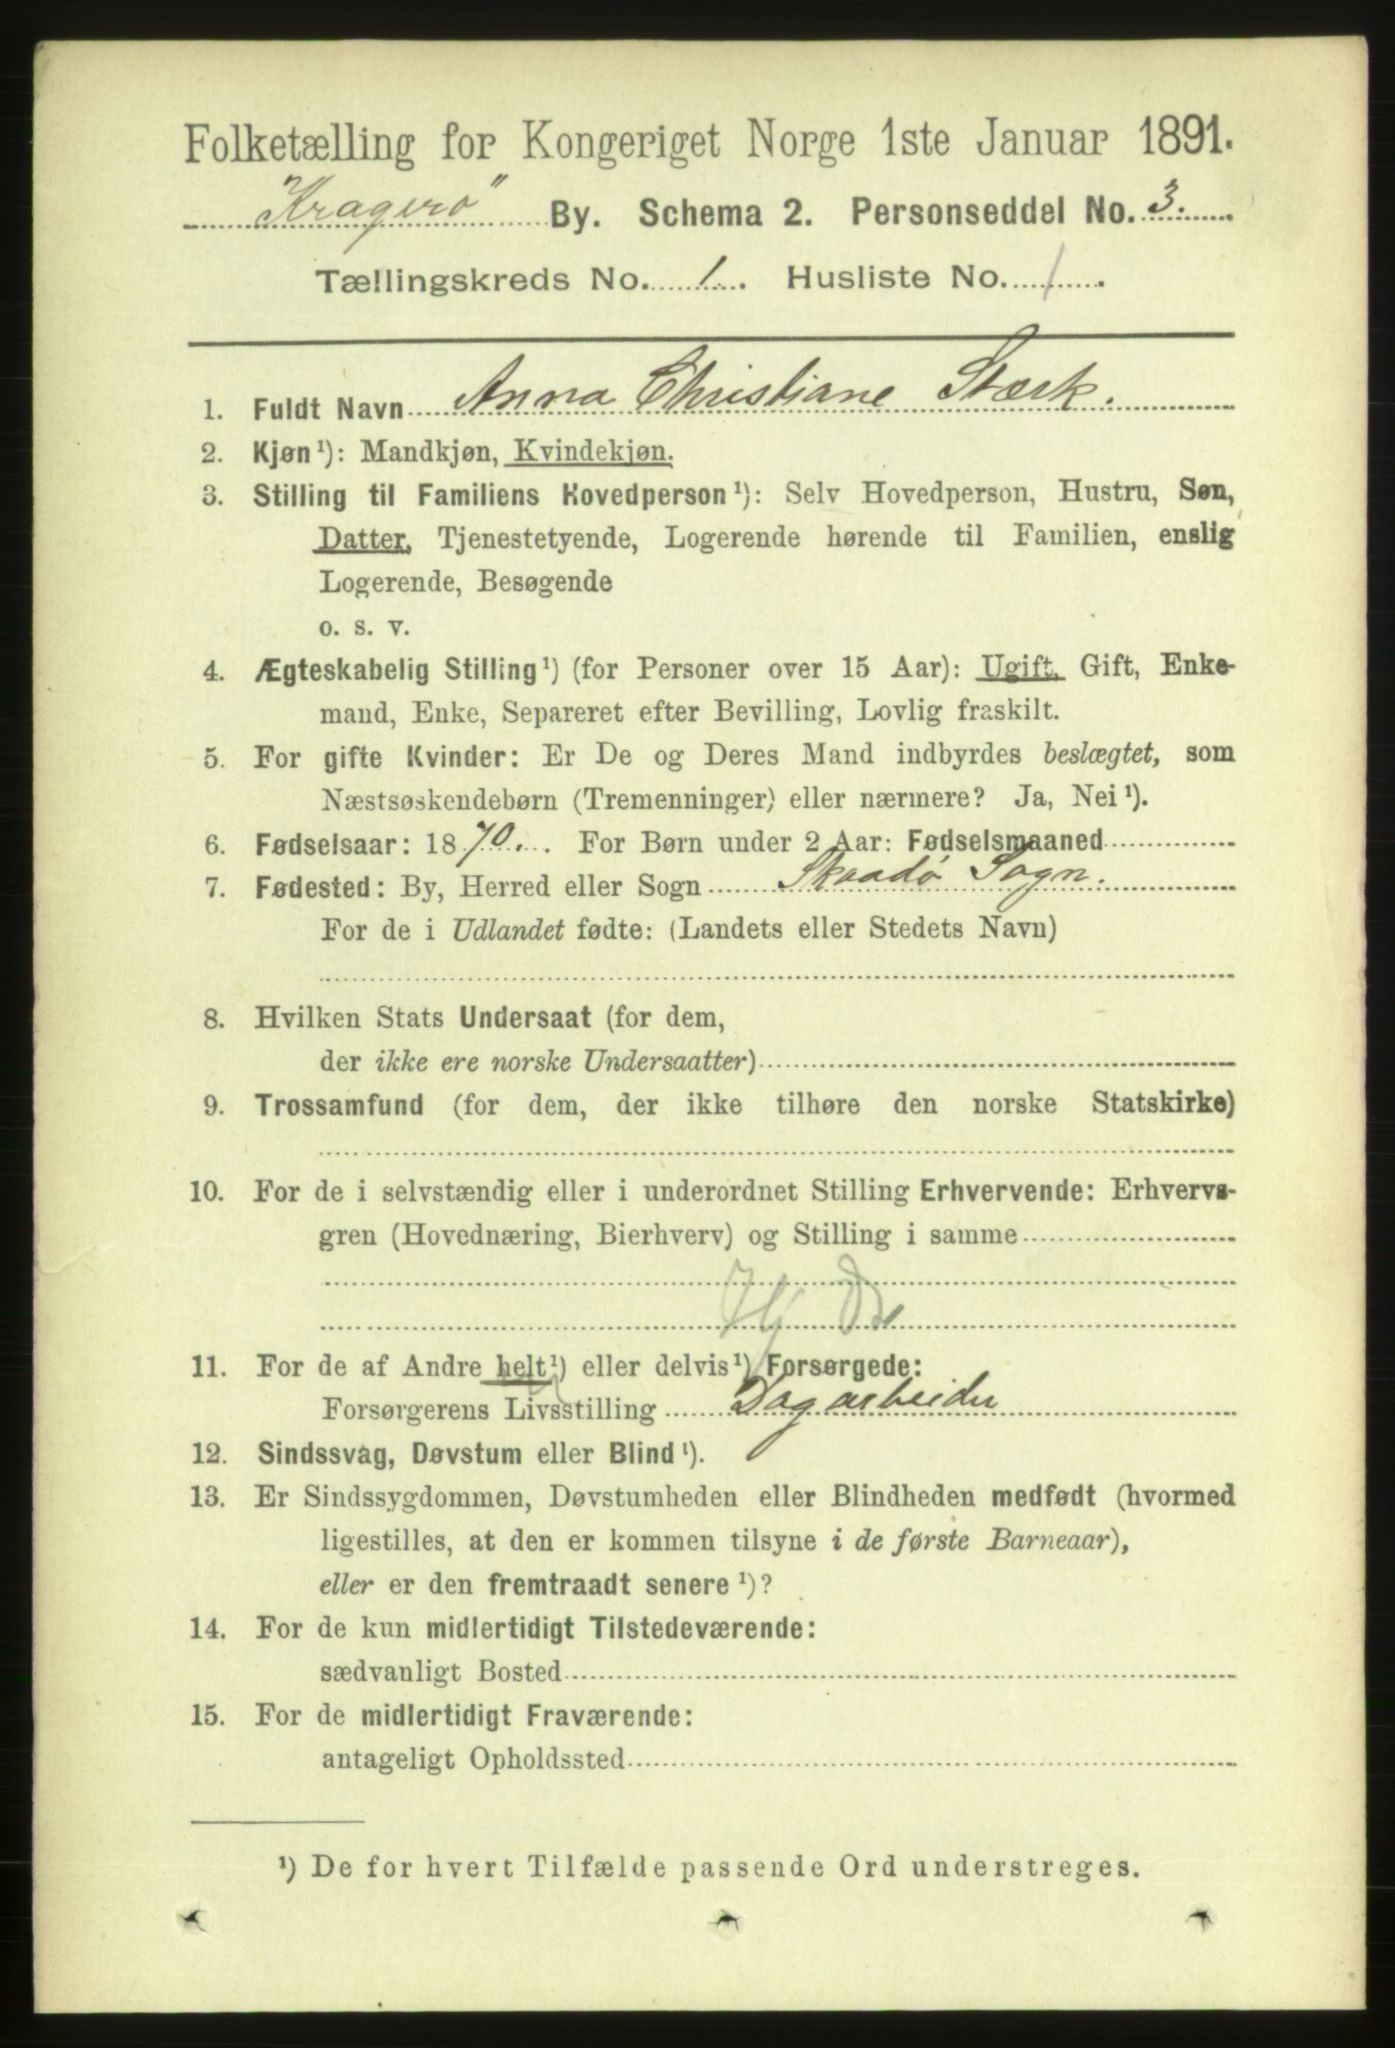 Folketælling for Kongeriget Norge 1ste Januar 1891.
"Kragerø" By. Schema 2. Personseddel No. 3.
Tællingskreds No. 1. Husliste No. 1.
1. Fuldt Navn Anna Christiane Stærk.
2. Kjøn¹): Mandkjøn, Kvindekjøn.
3. Stilling til Familiens Hovedperson¹): Selv Hovedperson, Hustru, Søn,
Datter, Tjenestetyende, Logerende hørende til Familien, enslig
Logerende, Besøgende
o. s. v.
4. Ægteskabelig Stilling¹) (for Personer over 15 Aar): Ugift, Gift, Enke-
mand, Enke, Separeret efter Bevilling, Lovlig fraskilt.
5. For gifte Kvinder: Er De og Deres Mand indbyrdes beslægtet, som
Næstsøskendebørn (Tremenninger) eller nærmere? Ja, Nei¹).
6. Fødselsaar: 1870. For Børn under 2 Aar: Fødselsmaaned
7. Fødested: By, Herred eller Sogn Skaadø Sogn.
For de i Udlandet fødte: (Landets eller Stedets Navn)
8. Hvilken Stats Undersaat (for dem,
der ikke ere norske Undersaatter)
9. Trossamfund (for dem, der ikke tilhøre den norske Statskirke)
10. For de i selvstændig eller i underordnet Stilling Erhvervende: Erhvervs-
gren (Hovednæring, Bierhverv) og Stilling i samme
11. For de af Andre helt¹) eller delvis¹) Forsørgede:
Forsørgerens Livsstilling Dagarbeider
12. Sindssvag, Døvstum eller Blind¹).
13. Er Sindssygdommen, Døvstumheden eller Blindheden medfødt (hvormed
ligestilles, at den er kommen tilsyne i de første Barneaar),
eller er den fremtraadt senere¹)?
14. For de kun midlertidigt Tilstedeværende:
sædvanligt Bosted
15. For de midlertidigt Fraværende:
antageligt Opholdssted
¹) De for hvert Tilfælde passende Ord understreges.